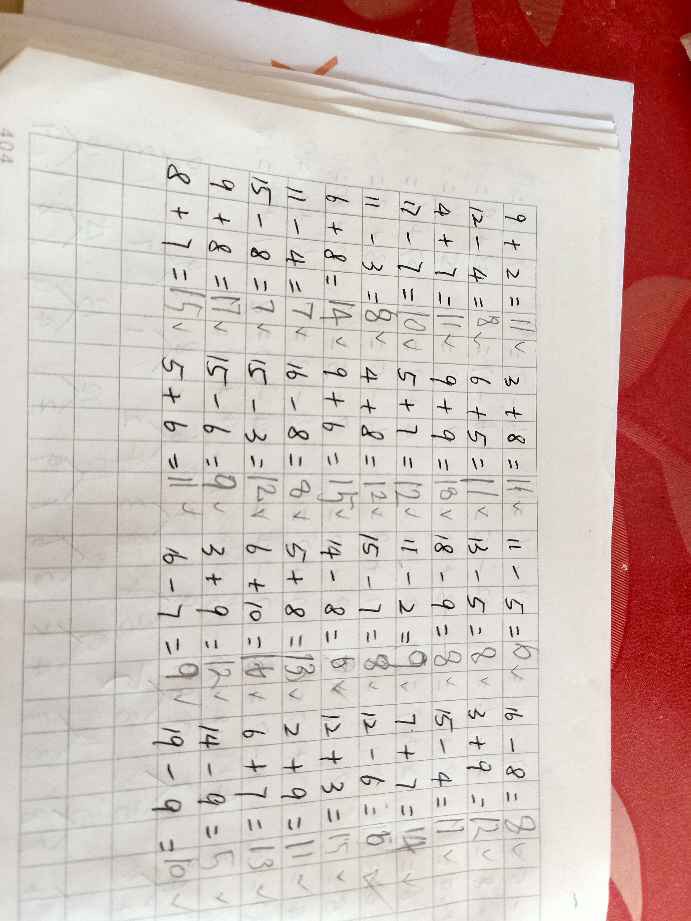 9 + 2 = 11 ✓ 3 + 8 = 11 ✓ 11 - 5 = 6 ✓ 16 - 8 = 8 ✓
12 - 4 = 8 ✓ 6 + 5 = 11 ✓ 13 - 5 = 8 ✓ 3 + 9 = 12 ✓
4 + 7 = 11 ✓ 9 + 9 = 18 ✓ 18 - 9 = 8 ✓ 15 - 4 = 11 ✓
17 - 7 = 10 ✓ 5 + 7 = 12 ✓ 11 - 2 = 9 ✓ 7 + 7 = 14 ✓
11 - 3 = 8 ✓ 4 + 8 = 12 ✓ 15 - 7 = 8 ✓ 12 - 6 = 6 ✓
6 + 8 = 14 ✓ 9 + 6 = 15 ✓ 14 - 8 = 6 ✓ 12 + 3 = 15 ✓
11 - 4 = 7 ✓ 16 - 8 = 8 ✓ 5 + 8 = 13 ✓ 2 + 9 = 11 ✓
15 - 8 = 7 ✓ 15 - 3 = 12 ✓ 6 + 10 = 16 ✓ 6 + 7 = 13 ✓
9 + 8 = 17 ✓ 15 - 6 = 9 ✓ 3 + 9 = 12 ✓ 14 - 9 = 5 ✓
8 + 7 = 15 ✓ 5 + 6 = 11 ✓ 16 - 7 = 9 ✓ 19 - 9 = 10 ✓
404